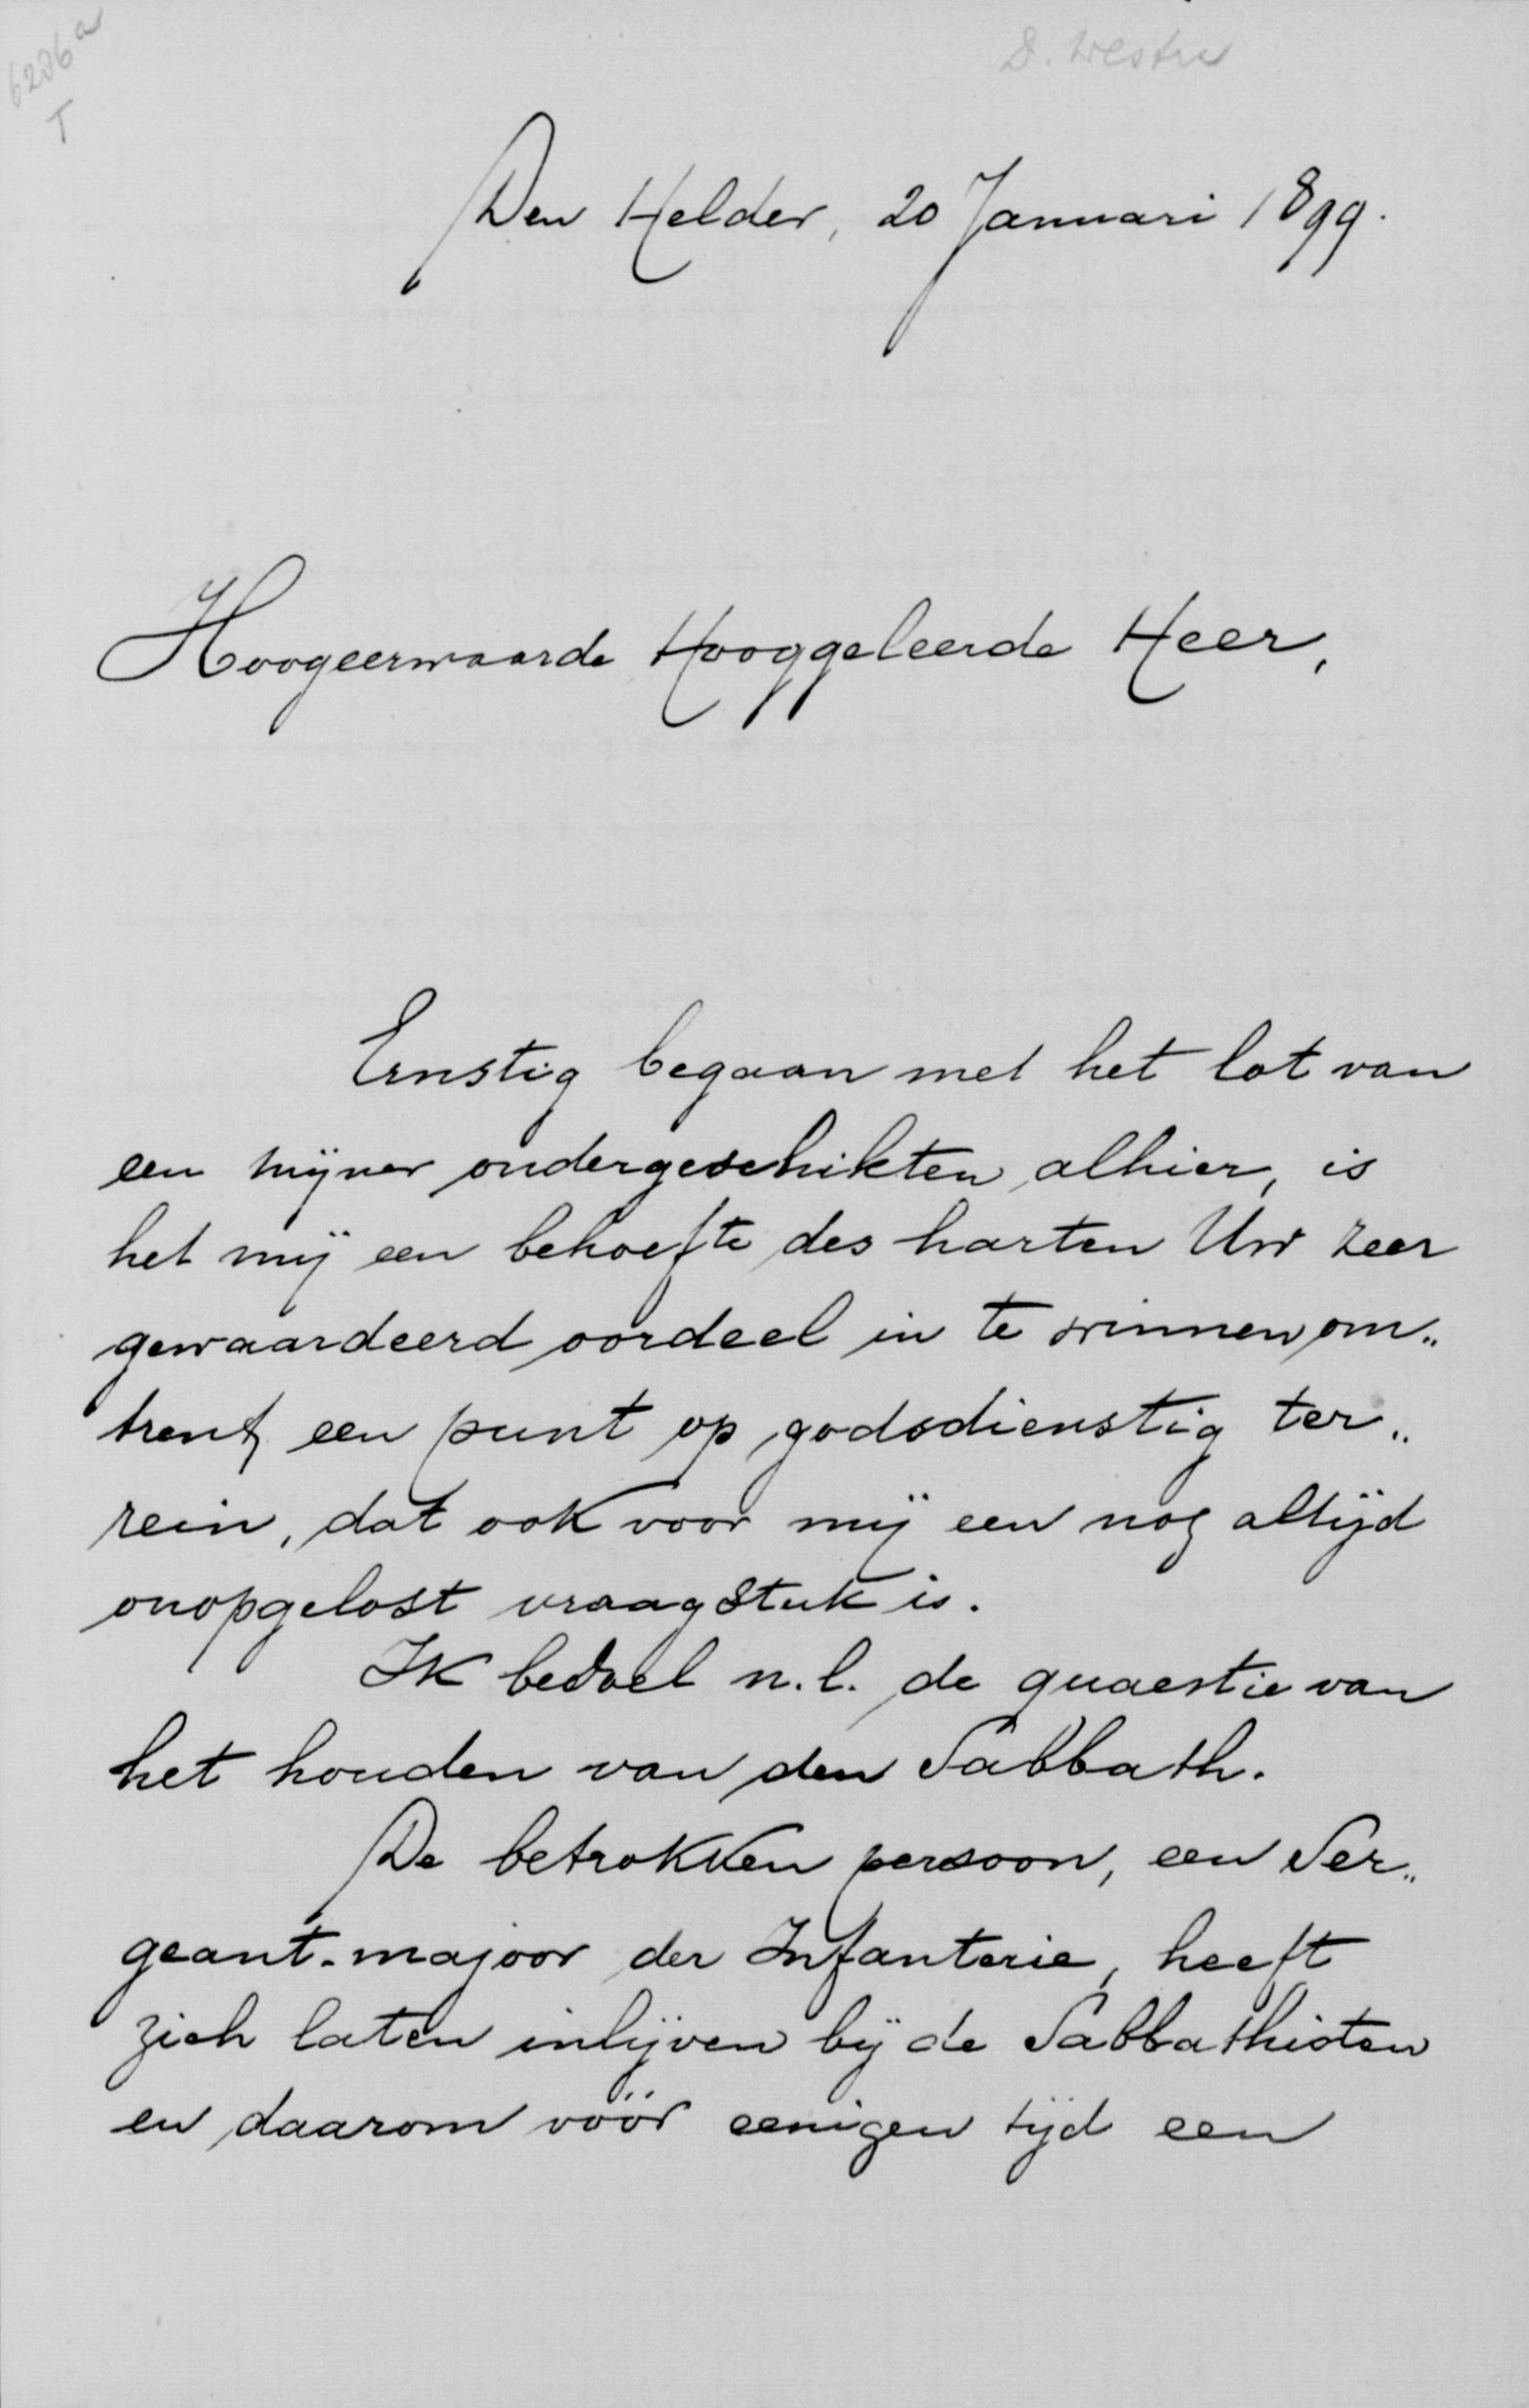 6286a
T
Den Helder, 20 Januari 1899.
Hoogeerwaarde Hooggeleerde Heer,
Ernstig begaan met het lot van
een mijner ondergeschikten alhier, is
het mij een behoefte des harten Uw zeer
gewaardeerd oordeel in te winnen om„
trent een punt op godsdienstig ter„
rein, dat ook voor mij een nog altijd
onopgelost vraagstuk is.
Ik bedoel n.l. de quaestie van
het houden van den Sabbath.
De betrokken persoon, een Ser„
geant-majoor der Infanterie, heeft
zich laten inlijven bij de Sabbathisten
en daarom vóór eenigen tijd een